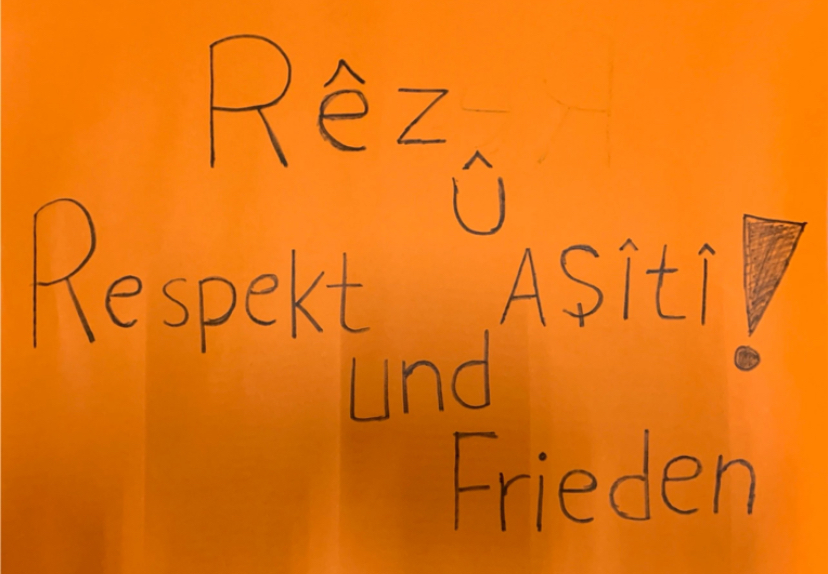 Rêz
û
Respekt AŞîtî!
und
Frieden